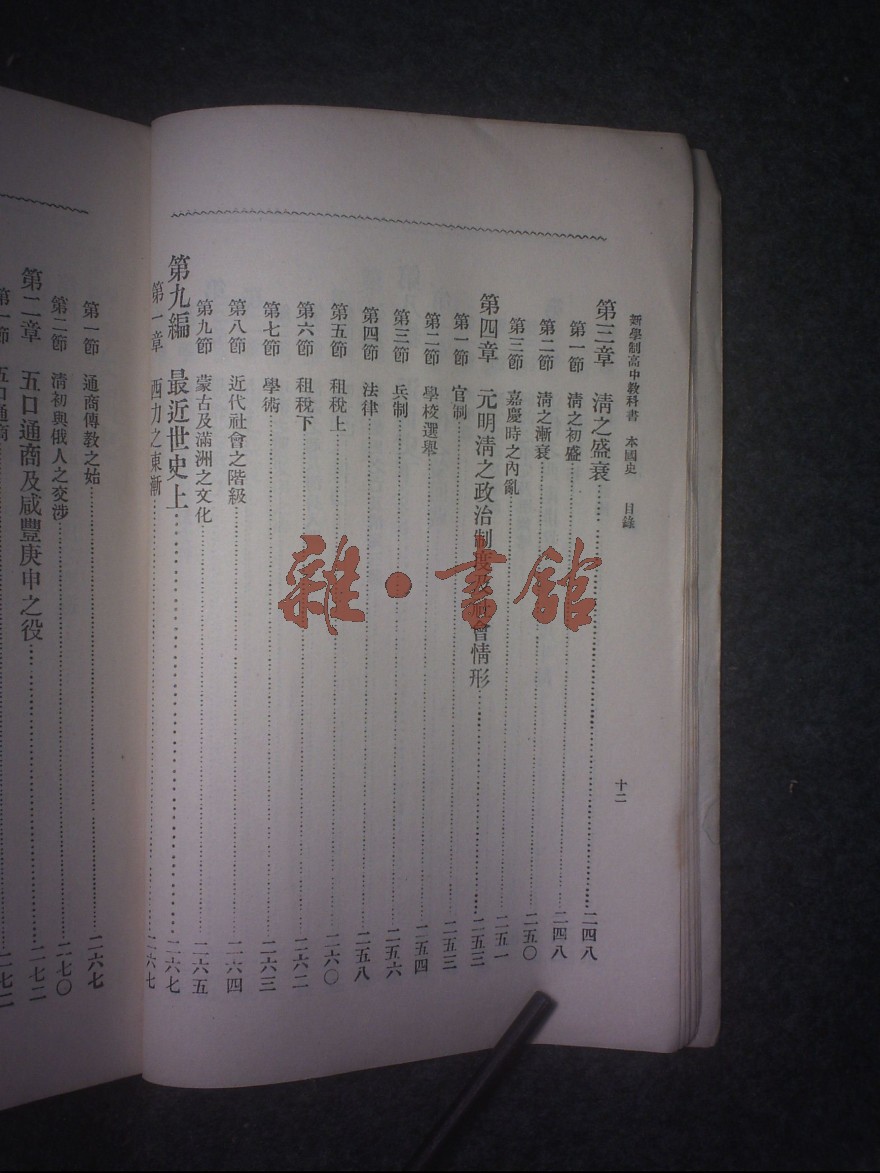 新學制高中教科書 本國史 目錄 十二
第三章 淸之盛衰 二四八
第一節 淸之初盛 二四八
第二節 淸之漸衰 二五〇
第三節 嘉慶時之內亂 二五一
第四章 元明淸之政治制度及社會情形 二五三
第一節 官制 二五三
第二節 學校選舉 二五四
第三節 兵制 二五六
第四節 法律 二五八
第五節 租稅上 二六〇
第六節 租稅下 二六二
第七節 學術 二六三
第八節 近代社會之階級 二六四
第九節 蒙古及滿洲之文化 二六五
第九編 最近世史上 二六七
第一章 西力之東漸 二六七
第一節 通商傳教之始 二六七
第二節 淸初與俄人之交涉 二七〇
第二章 五口通商及咸豐庚申之役 二七二
第一節 五口通商 二七二
雜·書館